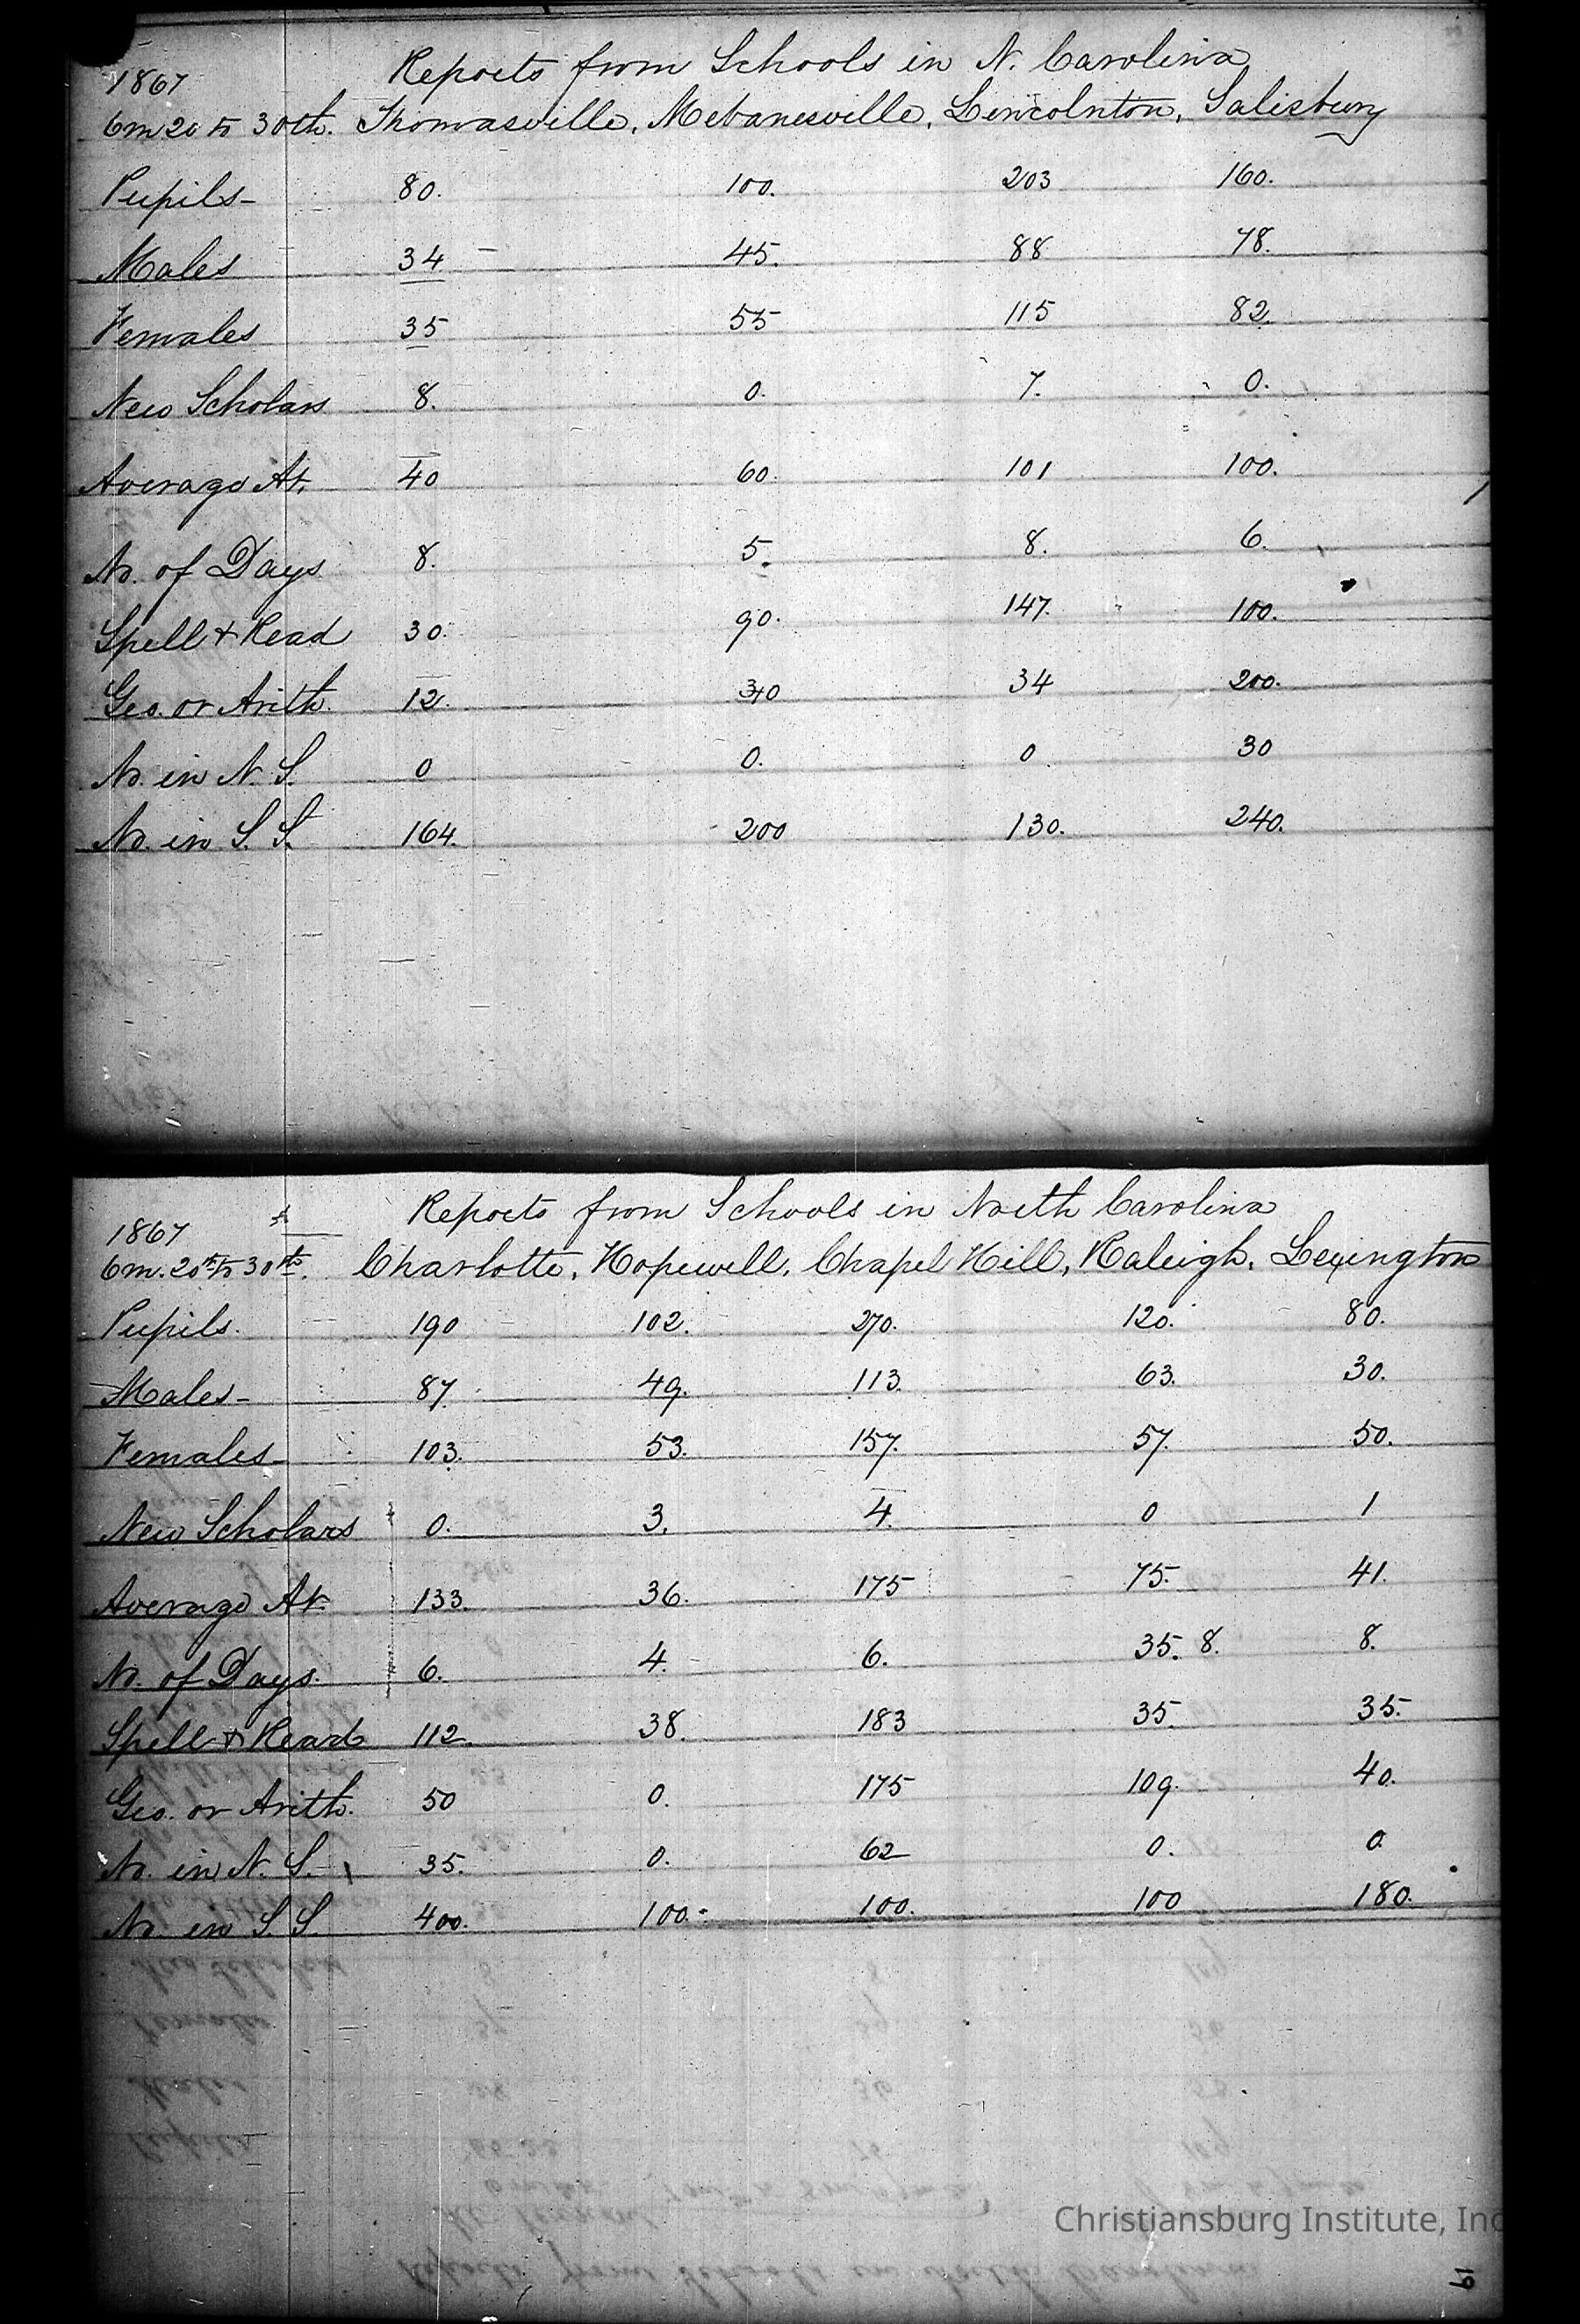 1867 Reports from Schools in N. Carolina
6m 20 to 30th. Thomasville, Mebanesville, Lincolnton, Salisbury
Pupils- 80. 100. 203 160.
Males 34 45. 88 78.
Females 35 55 115 82
New Scholars 8. 0. 7. 0.
Average At. 40 60. 101 100.
No. of Days 8. 5. 8. 6.
Spell & Read 30. 90. 147. 100.
Geo. or Arith. 12. 34 200.
No. in N. S. 0 0. 0 30
No. in S. S. 164. 200 130. 240.
1867 Reports from Schools in North Carolina
6m. 20th to 30th. Charlotte, Hopewell, Chapel Hill, Raleigh, Lexington
Pupils. 190 102. 270. 120. 80.
Males- 87. 49. 113. 63. 30.
Females- 103. 53. 157. 57. 50.
New Scholars 0. 3. 4. 0 1
Average At. 133. 36. 175 75. 41.
No. of Days. 6. 4. 6. 35. 8. 8.
Spell & Read 112. 38. 183 35. 35.
Geo. or Arith. 50 0. 175 109. 40.
No. in N. S. 35. 0. 62 0. 0
No. in S. S. 400. 100. 100. 100 180.
Christiansburg Institute, Inc